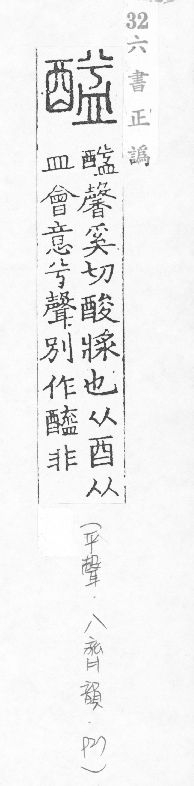 32 六書正譌
馨奚切酸漿也从酉从
皿會意兮聲別作醯非
(平聲．八齊韻．P27)